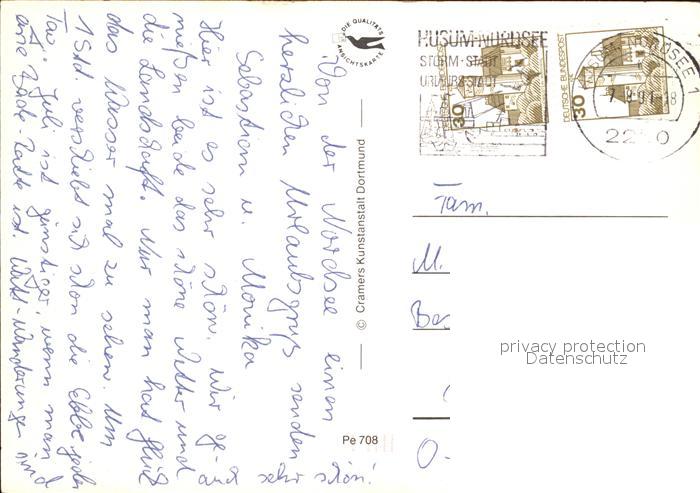 Von der Nordsee einen
herzlichen Urlaubsgruß senden
Sebastian u. Monika
Hier ist es sehr schön. Wir ge-
nießen beide das schöne Wetter und
die Landschaft. Nur man hat Glück
das Wasser mal zu sehen. Um
1 Std verschiebt sich schon die Ebbe jeden
Tag. Juli ist günstiger, wenn man
eine ist. Watt-Wanderungen sind
auch sehr schön!
DIE QUALITÄTS
ANSICHTSKARTE
© Cramers Kunstanstalt Dortmund
Pe 708
HUSUM-NORDSEE
STURM-STADT
URLAUBS-STADT
30
DEUTSCHE BUNDESPOST
30
2250
Fam.
M.
Be
O-
privacy protection
Datenschutz